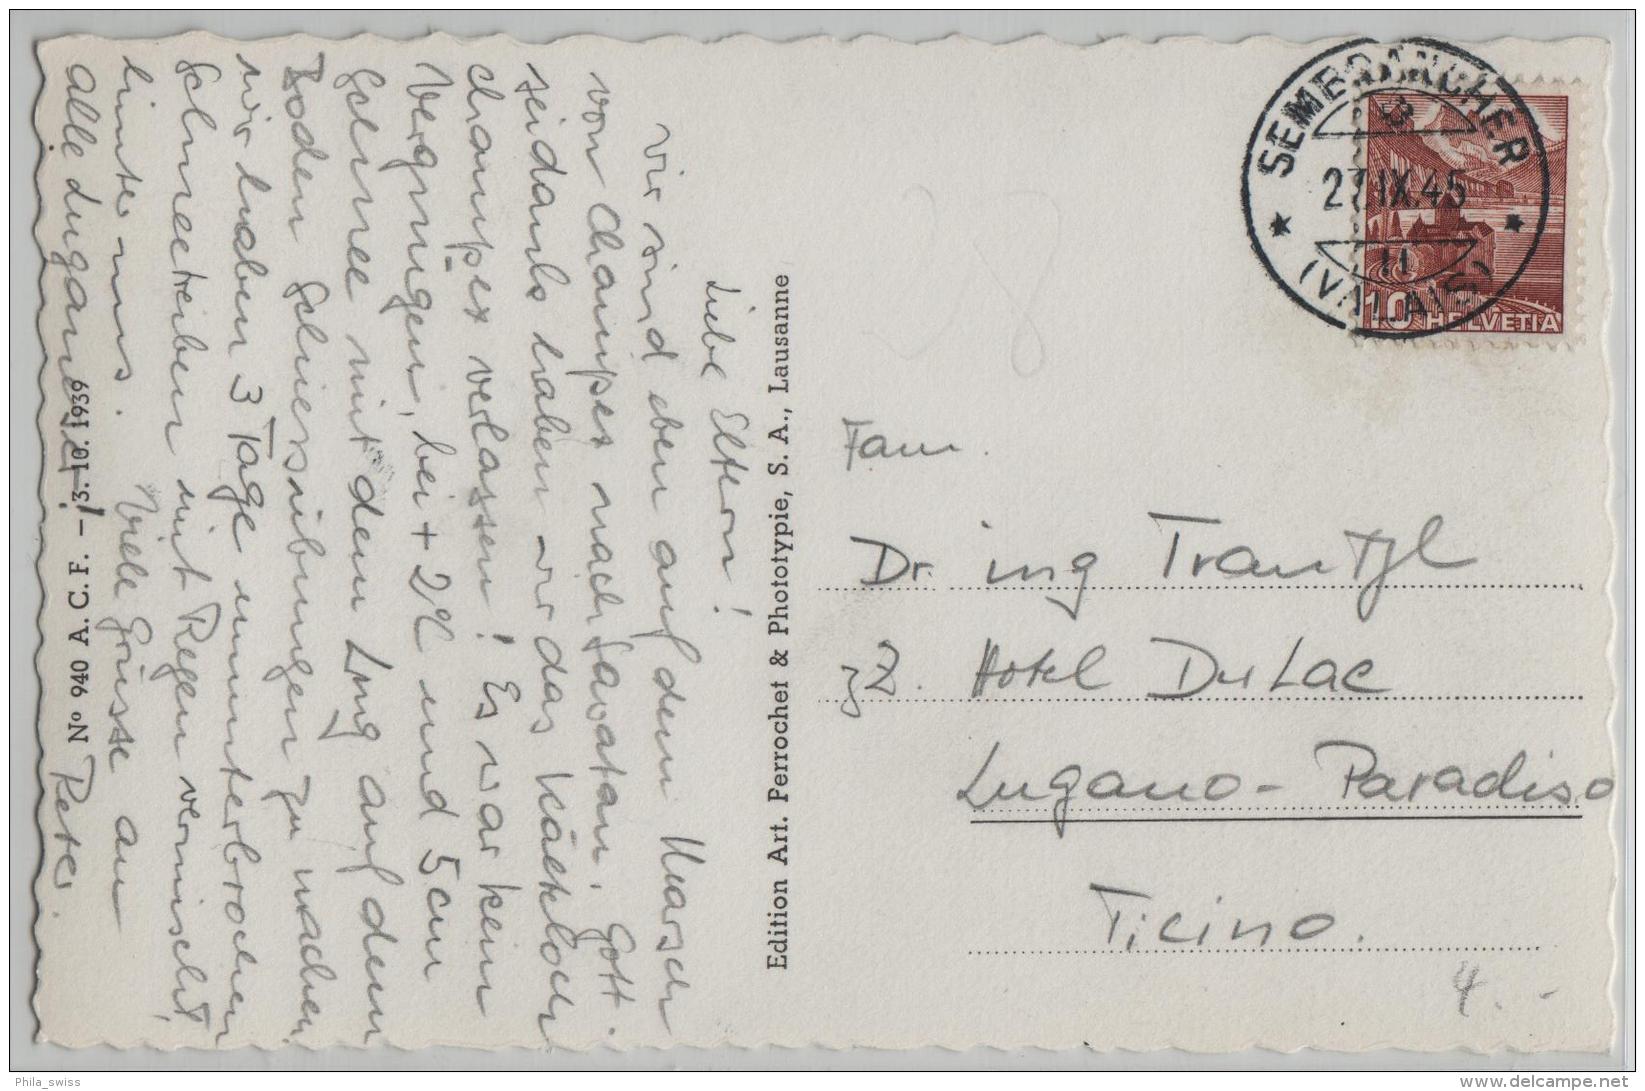 Liebe Eltern!
Wir sind eben auf dem Marsch
von Champex nach Savatan. Gott-
seidank haben wir das Kälteloch
champex verlassen! Es war kein
Vergnügen, bei +2°C und 5cm
Schnee mit dem Lmg auf dem
Boden Schiessübungen zu machen,
wir haben 3 Tage ununterbrochen
Schneetreiben mit Regen vermischt,
hinter uns. Viele Grüsse an
alle Luganeser! Peter.
Nº 940 A. C. F. – 3. 10. 1939
Edition Art. Perrochet & Phototypie, S. A., Lausanne
SEMBRANCHER
27.IX.45
11
(VALAIS)
10 HELVETIA
28
Fam.
Dr. ing Trautzl
zZ. Hotel Du Lac
Lugano - Paradiso
Ticino.
4.-
Phila_swiss
www.delcampe.net